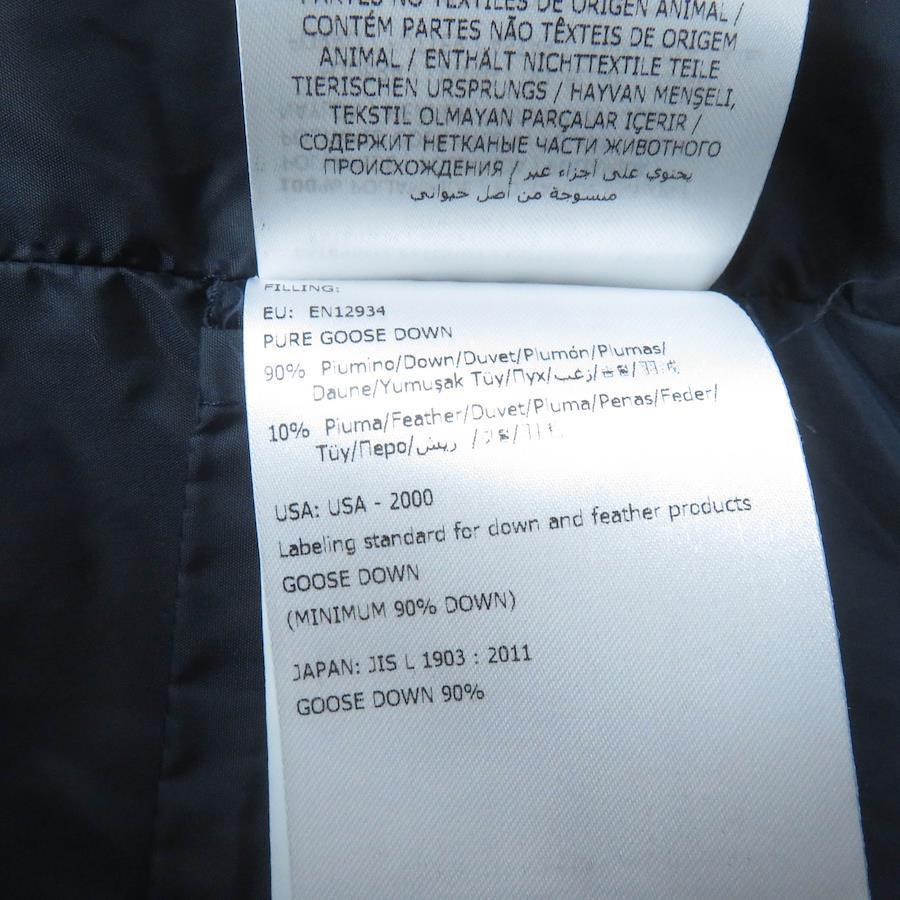 PARTES NO TEXTILES DE ORIGEN ANIMAL /
CONTÉM PARTES NÃO TÊXTEIS DE ORIGEM
ANIMAL / ENTHÄLT NICHTTEXTILE TEILE
TIERISCHEN URSPRUNGS / HAYVAN MENŞELİ,
TEKSTİL OLMAYAN PARÇALAR İÇERİR /
СОДЕРЖИТ НЕТКАНЫЕ ЧАСТИ ЖИВОТНОГО
ПРОИСХОЖДЕНИЯ / يحتوي على أجزاء غير
منسوجة من أصل حيواني
FILLING:
EU: EN12934
PURE GOOSE DOWN
90% Piumino/Down/Duvet/Plumón/Plumas/
Daune/Yumuşak Tüy/Пух/زغب/
10% Piuma/Feather/Duvet/Pluma/Penas/Feder/
Tüy/Перо/ريش /
USA: USA - 2000
Labeling standard for down and feather products
GOOSE DOWN
(MINIMUM 90% DOWN)
JAPAN: JIS L 1903 : 2011
GOOSE DOWN 90%